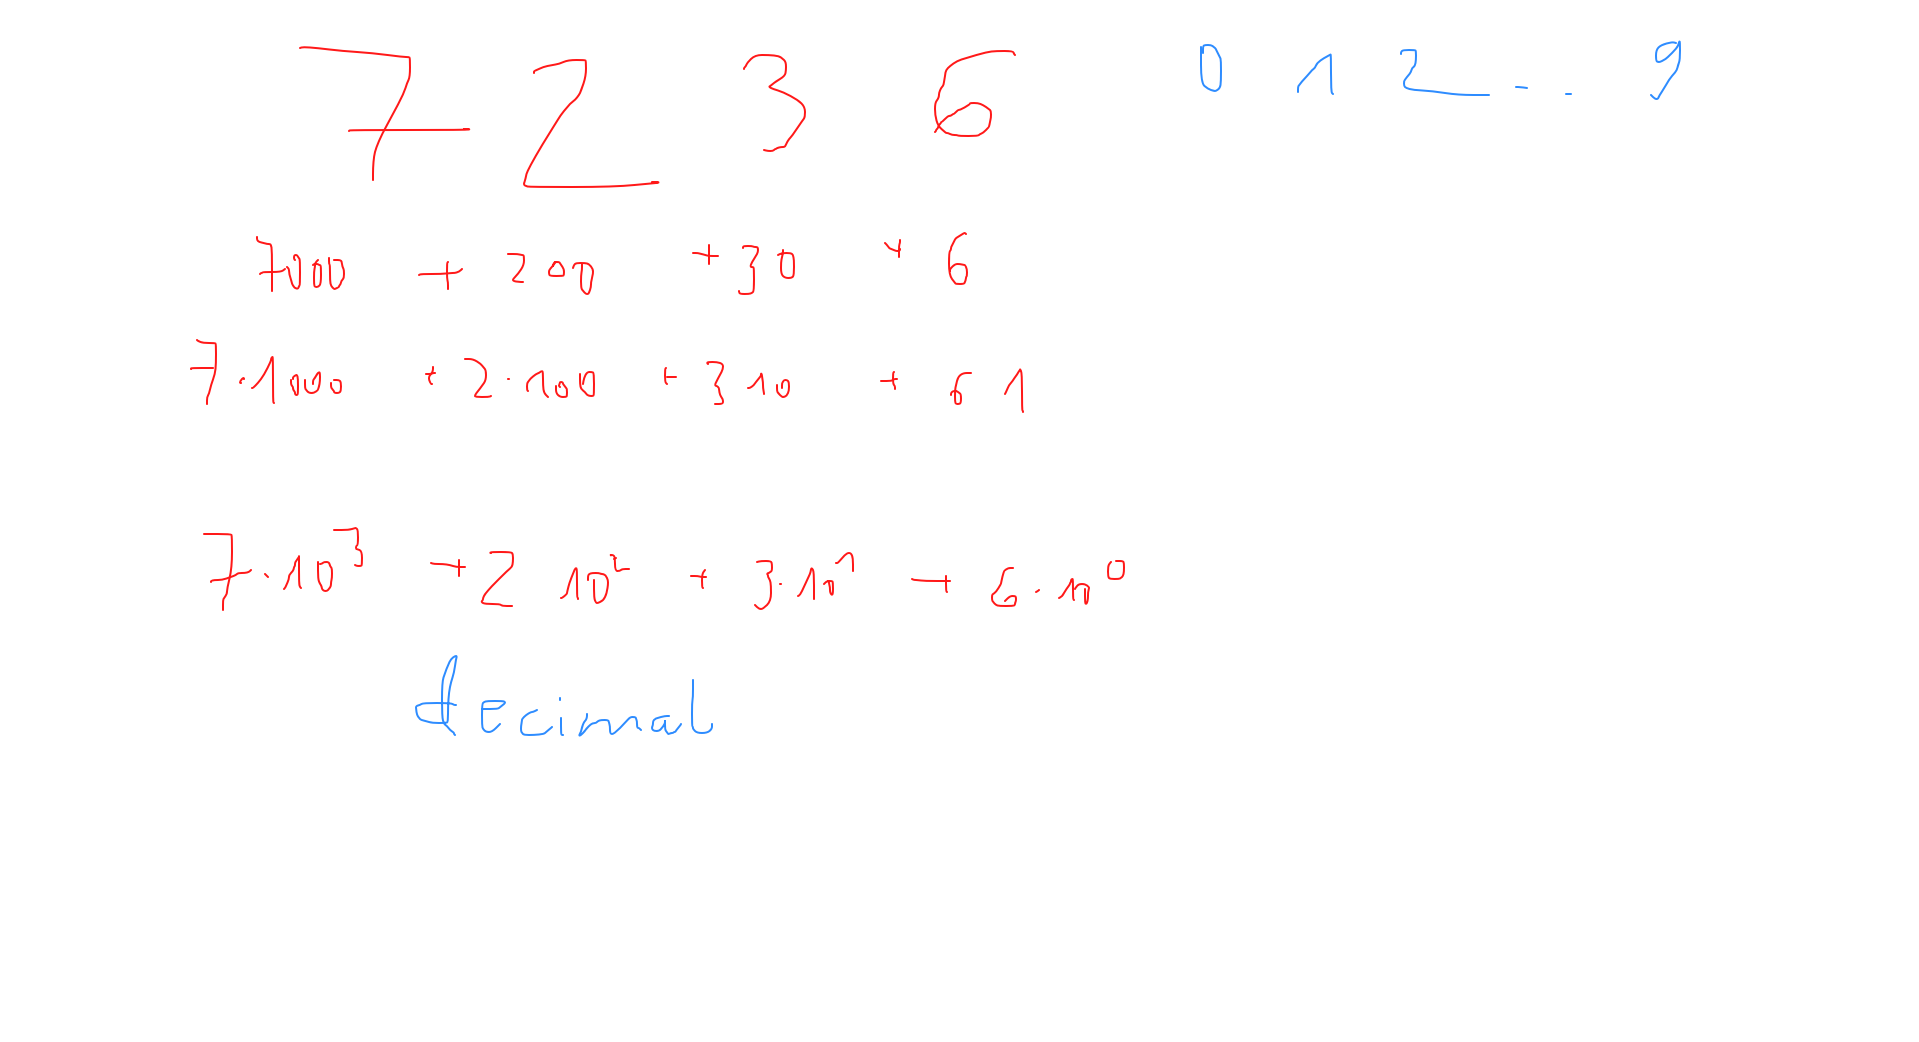 7 2 3 6 0 1 2 - . . 9
7000 + 200 + 30 + 6
7·1000 + 2·100 + 3 10 + 6 1
7·10³ + 2 10² + 3·10¹ + 6·10⁰
decimal